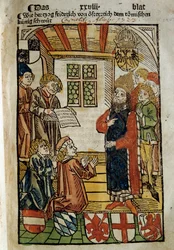 Das xxviiij blat
Wie hertzog fridrich von österreich dem römischen
künig schwür